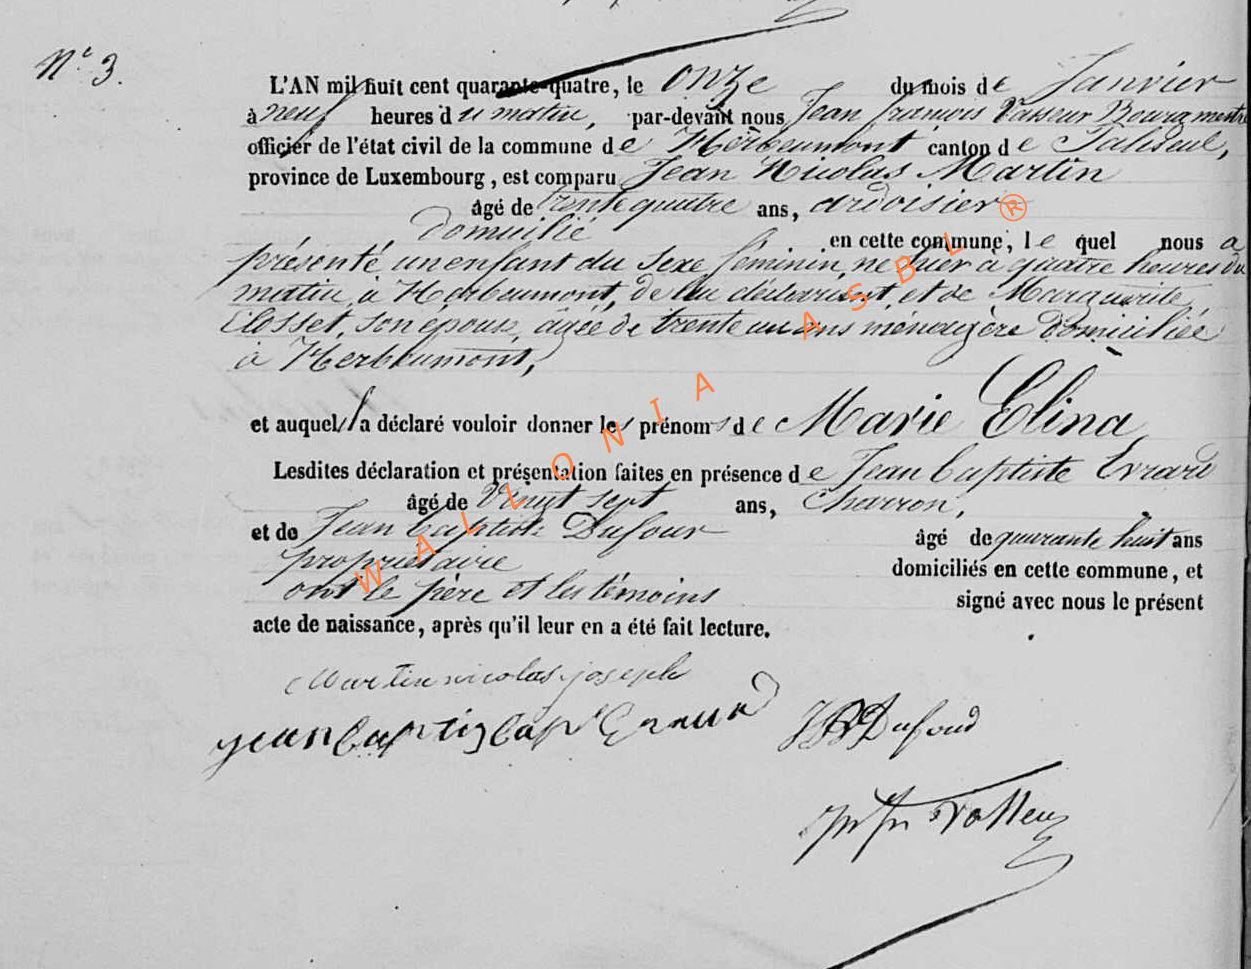 N° 3.
L'AN mil huit cent quarante-quatre, le onze du mois de Janvier
à neuf heures du matin, par-devant nous Jean françois Vasseur Bourgmestre
officier de l'état civil de la commune de Herbeumont canton de Paliseul,
province de Luxembourg, est comparu Jean Nicolas Martin
âgé de trente quatre ans, ardoisier
domicilié en cette commune, lequel nous a
présenté un enfant du sexe féminin, né hier à quatre heures du
matin, à Herbeumont, de lui déclarant, et de Marguerite
Closset, son épouse, âgée de trente un ans ménagère domiciliée
à Herbeumont,
et auquel il a déclaré vouloir donner les prénoms de Marie Elina
Lesdites déclaration et présentation faites en présence de Jean baptiste Evrard
âgé de vingt sept ans, Charron,
et de Jean baptiste Dufour âgé de quarante huit ans
propriétaire domiciliés en cette commune, et
ont le père et les témoins signé avec nous le présent
acte de naissance, après qu'il leur en a été fait lecture.
Martin nicolas joseph
jean Dufour
WALLONIA ASBL ®